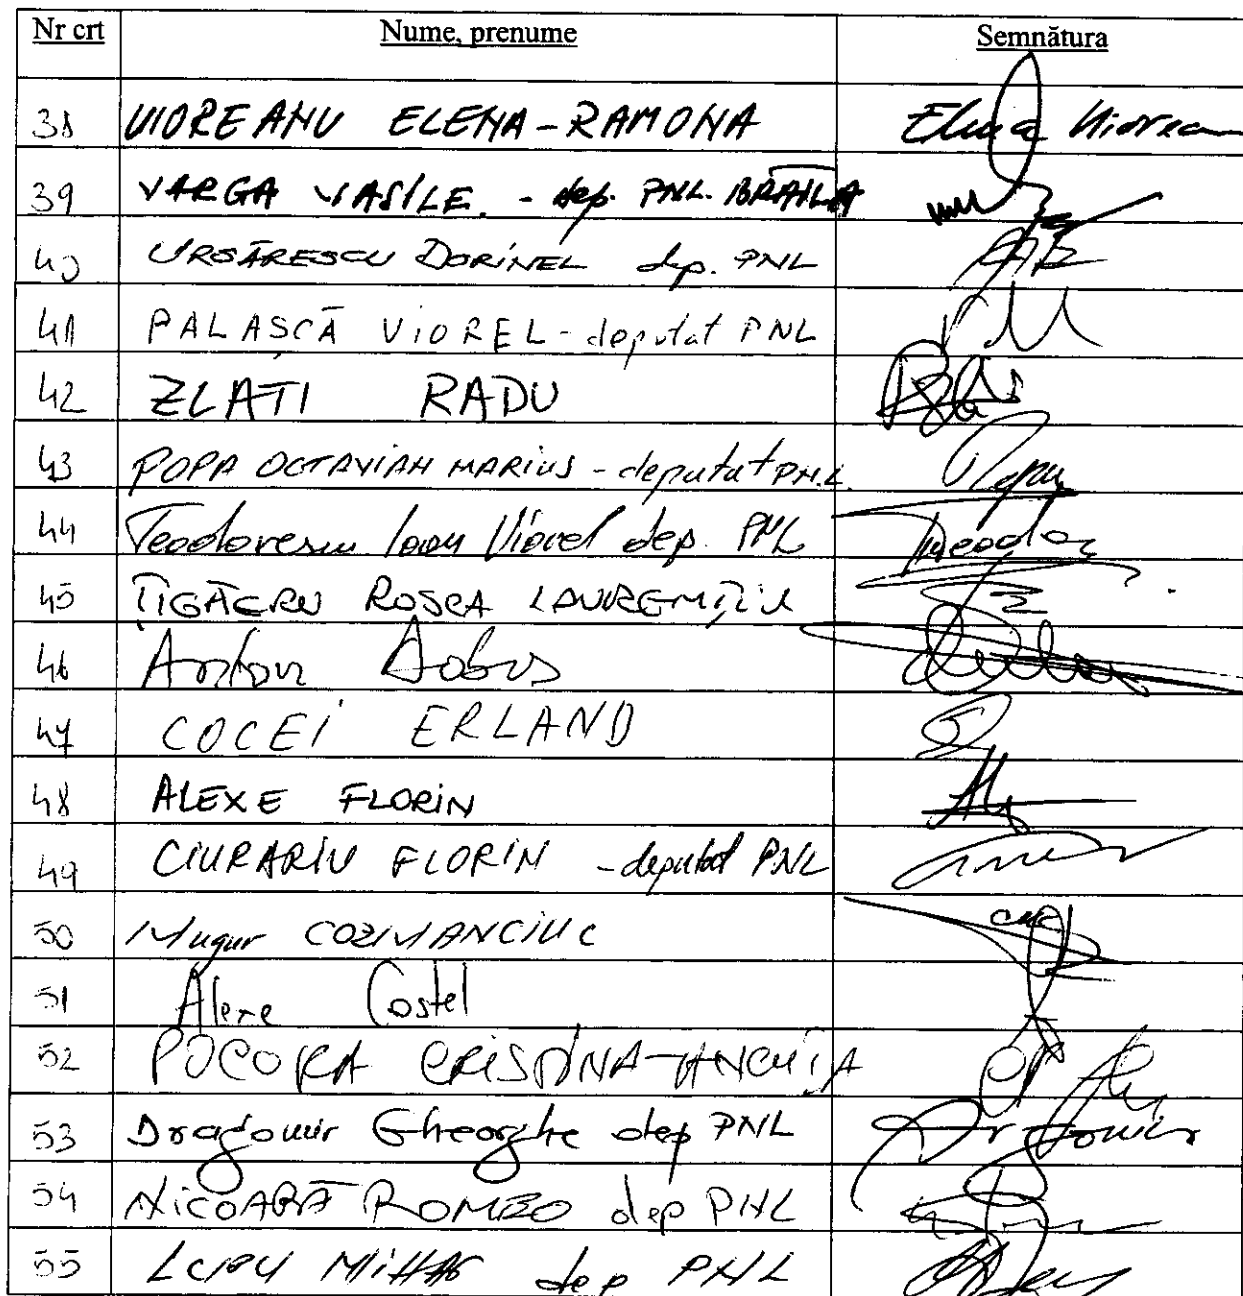 Nr crt Nume, prenume Semnătura
38 UIOREANU ELENA-RAMONA Elena Uiorean
39 VARGA VASILE. - dep. PNL. BRĂILA
40 URSĂRESCU DORINEL dep. PNL
41 PALAȘCĂ VIOREL - deputat PNL
42 ZLATI RADU
43 POPA OCTAVIAN MARIUS - deputat PNL. Popa
44 Teodorescu Ioan Viorel dep. PNL Theodor
45 ROȘCA LAURENȚIU
46 Anton Dobos
47 COCEI ERLAND
48 ALEXE FLORIN
49 CIURARIU FLORIN - deputat PNL
50 Mugur COZMANCIUC
51 Alexe Costel
52 POCORA CRISTINA-ANCUȚA
53 Dragomir Gheorghe dep PNL
54 NICOARĂ ROMEO dep PNL
55 LUPU MIHAI dep PNL